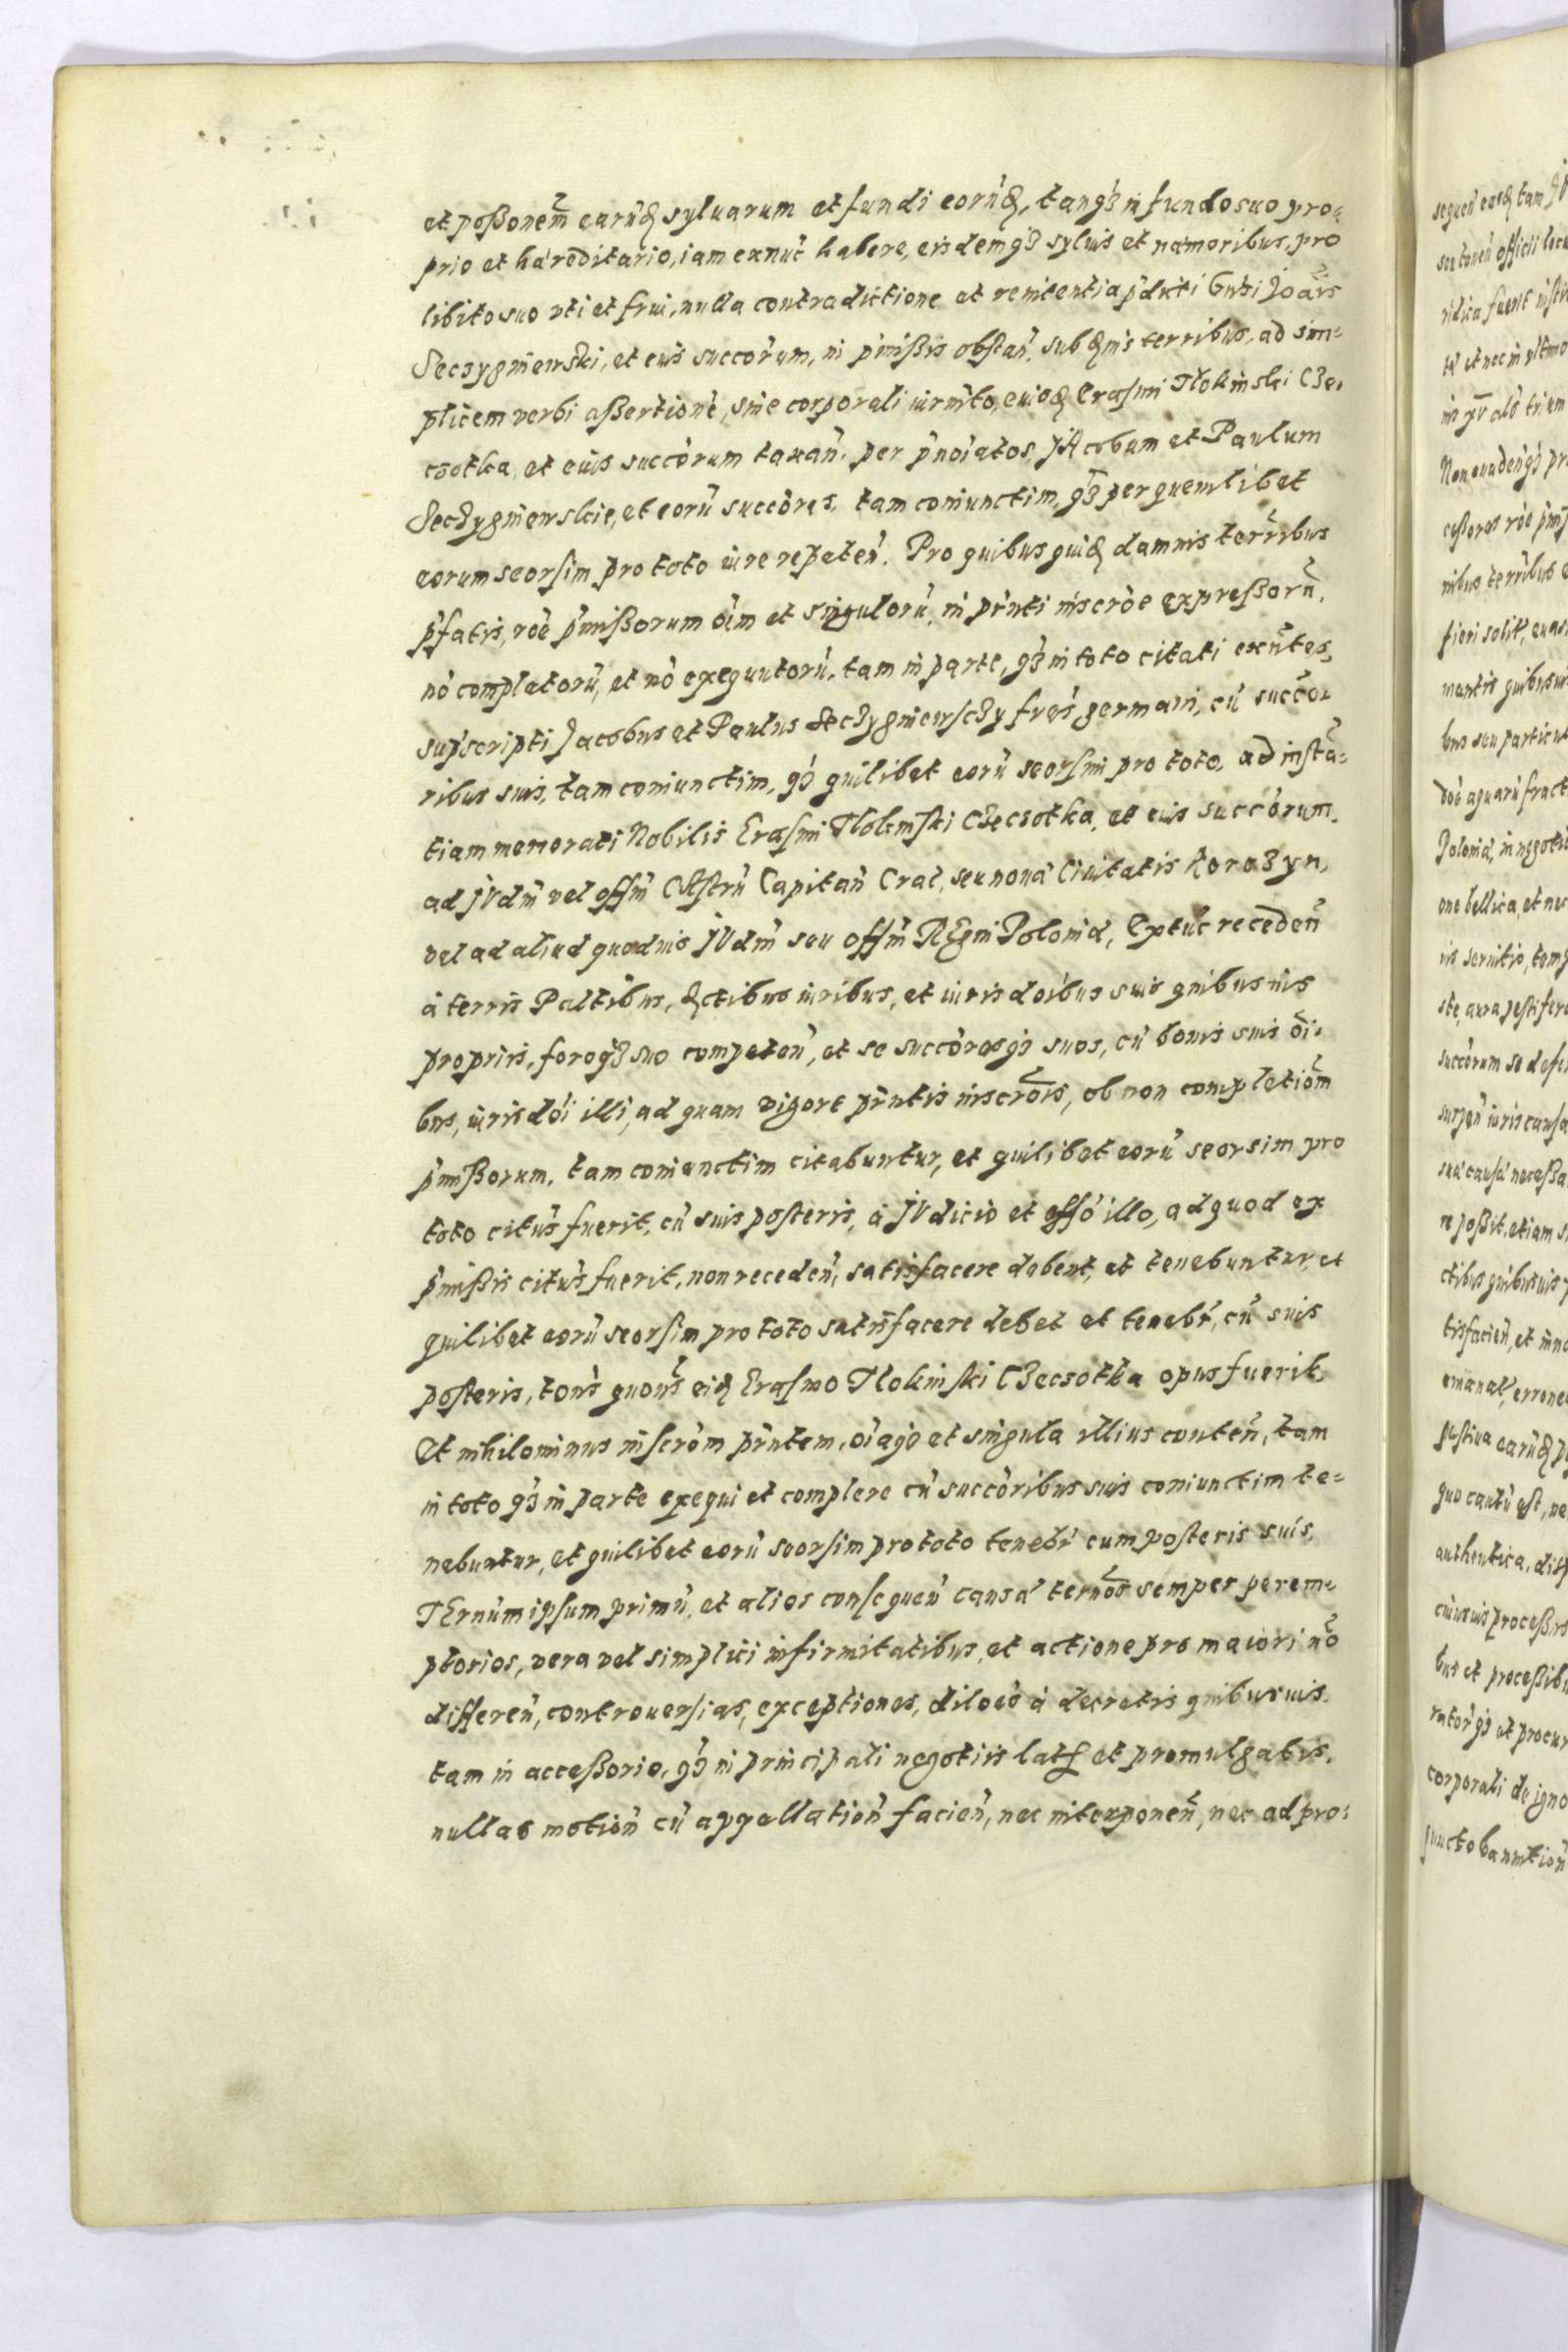 et poßonem̃ earũđ syluarum et fundi eorũđ, tanqȝ in fundo suo pro-
prio et hæreditario, iam ex nũc habere, eisdemqȝ syluis et næmoribus, pro
libito suo vti et frui, nulla contradictione et renitentia p̃dicti Gñsi Joãis
Seczygniewski, et eius succõrum, in p̃mißis obstañ. sub đmis terribus, ad sim-
plicem verbi aßertionẽ, sine corporali iurm̃to, eiusđ Erasmi Tlokinski Cze-
czotka, et eius succõrum taxañ. per p̃noĩatos, JAcobum et Paulum
Seczygniewskie, et eorũ succõres, tam coniunctim, qȝ per quemlibet
eorum seorsim pro toto iure repeteñ. Pro quibus quiđ damnis terr̃ribus
p̃fatis, rõe p̃mißorum oĩm et singulorũ, in p̃ñti inscrõe expreßorũ,
nõ completorũ, et nõ exequutorũ, tam in parte, qȝ in toto citati exñtes,
sup̃scripti Jacobus et Paulus Seczygniewsczy fres̃ germani, cũ succõ-
ribus suis, tam coniunctim, qȝ quilibet eorũ seorsim pro toto, ad instã-
tiam memorati Nobilis Erasmi Tlokinski Czeczotka, et eius succõrum,
ad JVdm̃ vel offm̃ CAstrũ Capitañ Crac, seu nouæ Ciuitatis Korczyn,
vel ad aliud quoduis JVdm̃ seu offm̃ REgni Poloniæ, Ex tũc recedeñ
à terris Paltibus, đctibus iuribus, et iurisdoĩbus suis quibusuis
proprijs, foroqȝ suo competeñ, et se succõresqȝ suos, cũ bonis suis oĩ-
bus, iurisdõi illi, ad quam vigore p̃ntis inscrõis, ob non completioñm
p̃mißorum, tam coniunctim citabuntur, et quilibet eorũ seorsim pro
toto citus̃ fuerit, cũ suis posteris, à JVdicio et offõ illo, ad quod ex
p̃mißis citus̃ fuerit, non recedeñ, satisfacere debent, et tenebuntur, et
quilibet eorũ seorsim pro toto satisfacere debet et tenebr̃, cũ suis
posteris, tons̃ quons̃ eiđ Erasmo Tlokinski Czeczotka opus fuerit,
Et nihilominus inscrõm p̃ntem, oĩaqȝ et singula illius conteñ, tam
in toto qȝ in parte exequi et complere cũ succõribus suis coniunctim te-
nebuntur, et quilibet eorũ seorsim pro toto tenebr̃ cum posteris suis,
TErnum ipsum primũ, et alios consequeñ causæ ternõs semper perem-
ptorios, vera vel simplici infirmitatibus, et actione pro maiori nõ
differeñ, controuersias, exceptiones, diloẽs à decretis quibusuis
tam in acceßorio, qȝ in principali negotiis latis et promulgatis,
nullas motioñ cũ appellatioñ facieñ, nec interponeñ, nec ad pro-